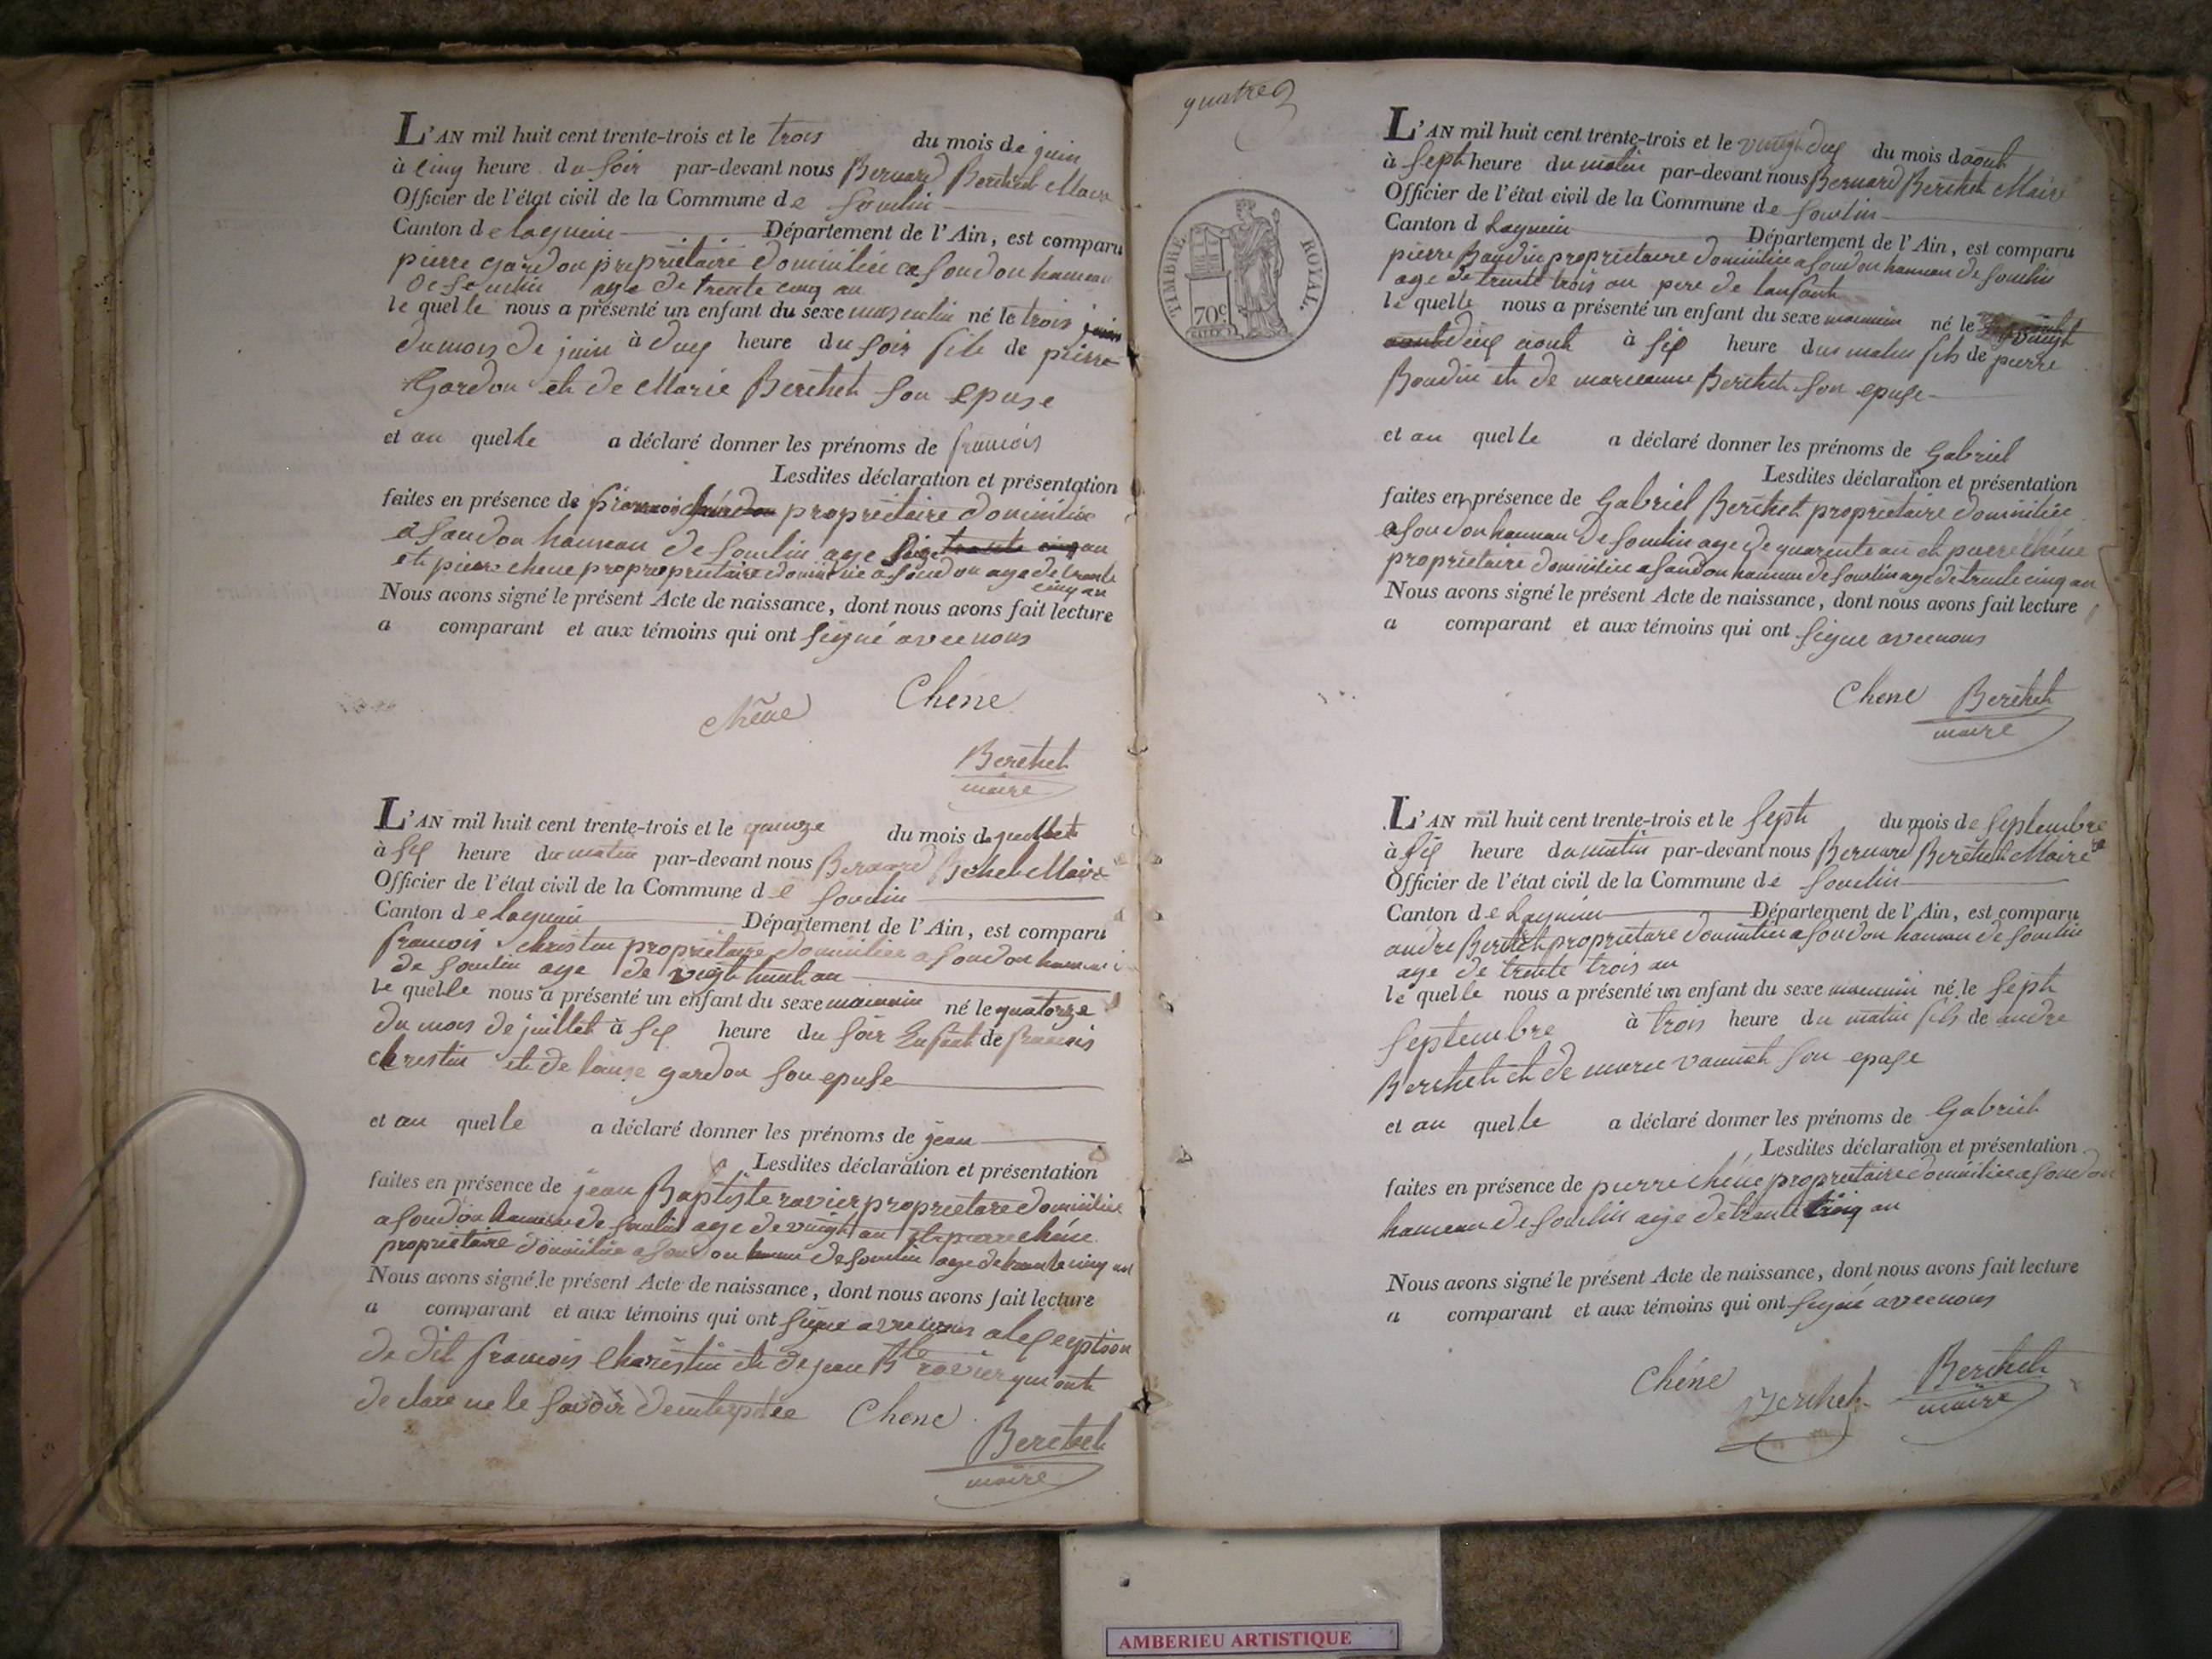 L'AN mil huit cent trente-trois et le trois du mois de juin
à cinq heure du soir par-devant nous Bernard Berthet Maire
Officier de l'état civil de la Commune de Souclin
Canton de lagnieu Département de l'Ain, est comparu
pierre gardon propriétaire domicilie a Soudon hameau
de Souclin age de trente cinq an
le quelle nous a présenté un enfant du sexe masculin né le trois juin
du mois de juin à duex heure du soir fils de pierre
Gardon et de Marie Berthet son epuse
et au quelle a déclaré donner les prénoms de francois
Lesdites déclaration et présentation
faites en présence de propriétaire domicilie
a Soudon hameau de Souclin age an
et pierre chene propropriétaire domicilie a Soudon age de trente
cinq an
Nous avons signé le présent Acte de naissance, dont nous avons fait lecture
a comparant et aux témoins qui ont signé avec nous
Chene Chene
Berthet
maire
L'AN mil huit cent trente-trois et le quinze du mois de juillet
à six heure du matin par-devant nous Bernard Bethet Maire
Officier de l'état civil de la Commune de Souclin
Canton de lagnieu Département de l'Ain, est comparu
francois christin propriétaire domicilie a Soudon hameau
de Souclin age de vigt huit an
le quelle nous a présenté un enfant du sexe né le quatorze
du mois de juillet à six heure du soir Enfant de francois
christin et de gardon son epuse
et au quelle a déclaré donner les prénoms de jean
Lesdites déclaration et présentation
faites en présence de jean Baptiste ravier proprietare domicilie
a Soudon hameau de Souclin age de vingt an et pierre chéne
propriétaire domicilie a Soudon de Souclin age de trente cinq an
Nous avons signé le présent Acte de naissance, dont nous avons fait lecture
a comparant et aux témoins qui ont signe avec nous
de dit francois et de jean Bte ravier qui ont
declare ne le savoir Chene
Berthet
maire
quatre
TIMBRE ROYAL.
70c
L'AN mil huit cent trente-trois et le vingt dix du mois daout
à sept heure du matin par-devant nous Bernard Berthet Maire
Officier de l'état civil de la Commune de Souclin
Canton d Lagnieu Département de l'Ain, est comparu
pierre Boudin proprietaire domicilie a Soudon hameau de Souclin
age de trente trois an pere de lanfant
le quelle nous a présenté un enfant du sexe né le vingt
dix aout à six heure du matin fils de pierre
Boudin et de marieanne Berthet son epuse
et au quelle a déclaré donner les prénoms de Gabriel
Lesdites déclaration et présentation
faites en présence de Gabriel Berthet propriétaire domicilie
a Soudon hameau de Souclin age de quarente an et pierre chéne
propriétaire domicilie a Soudon hameau de Souclin age de trente cinq an
Nous avons signé le présent Acte de naissance, dont nous avons fait lecture
a comparant et aux témoins qui ont signe avec nous
Chene Berthet
maire
L'AN mil huit cent trente-trois et le sept du mois de septembre
à six heure du matin par-devant nous Bernard Berthet Maire
Officier de l'état civil de la Commune de Souclin
Canton de Lagnieu Département de l'Ain, est comparu
andre Berthet propriétare domicilie a Soudon hameau de Souclin
age de trente trois an
le quelle nous a présenté un enfant du sexe né le sept
septembre à trois heure du matin fils de andre
Berthet et de marie son epuse
et au quelle a déclaré donner les prénoms de Gabriel
Lesdites déclaration et présentation
faites en présence de pierre chéne propriétaire domicilie a Soudon
hameau de Souclin age de trante cinq an
Nous avons signé le présent Acte de naissance, dont nous avons fait lecture
a comparant et aux témoins qui ont signé avec nous
Chéne Berthet Berthet
maire
AMBERIEU ARTISTIQUE